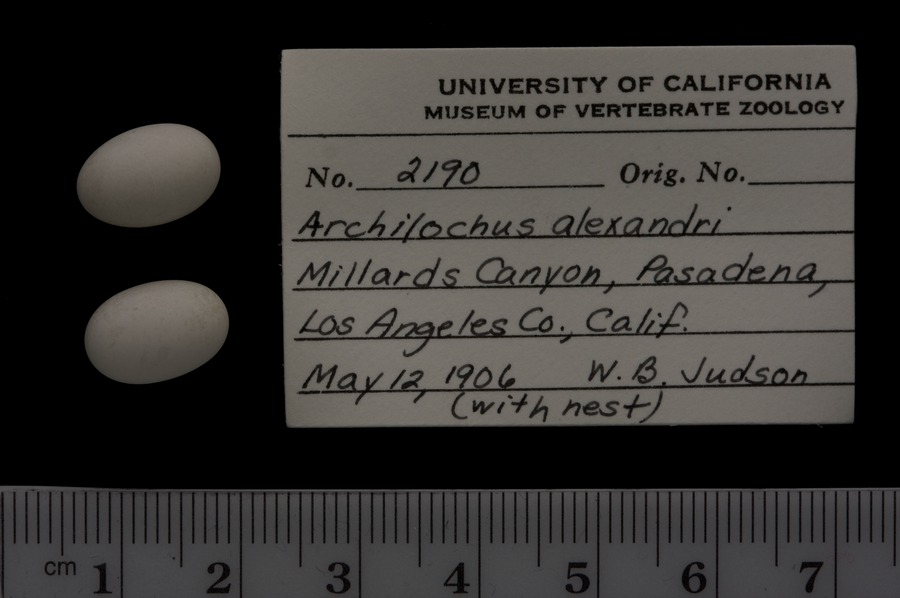 UNIVERSITY OF CALIFORNIA
MUSEUM OF VERTEBRATE ZOOLOGY
No. 2190 Orig. No.
Archilochus alexandri
Millards Canyon, Pasadena,
Los Angeles Co., Calif.
May 12, 1906 W. B. Judson
(with nest)
cm 1 2 3 4 5 6 7